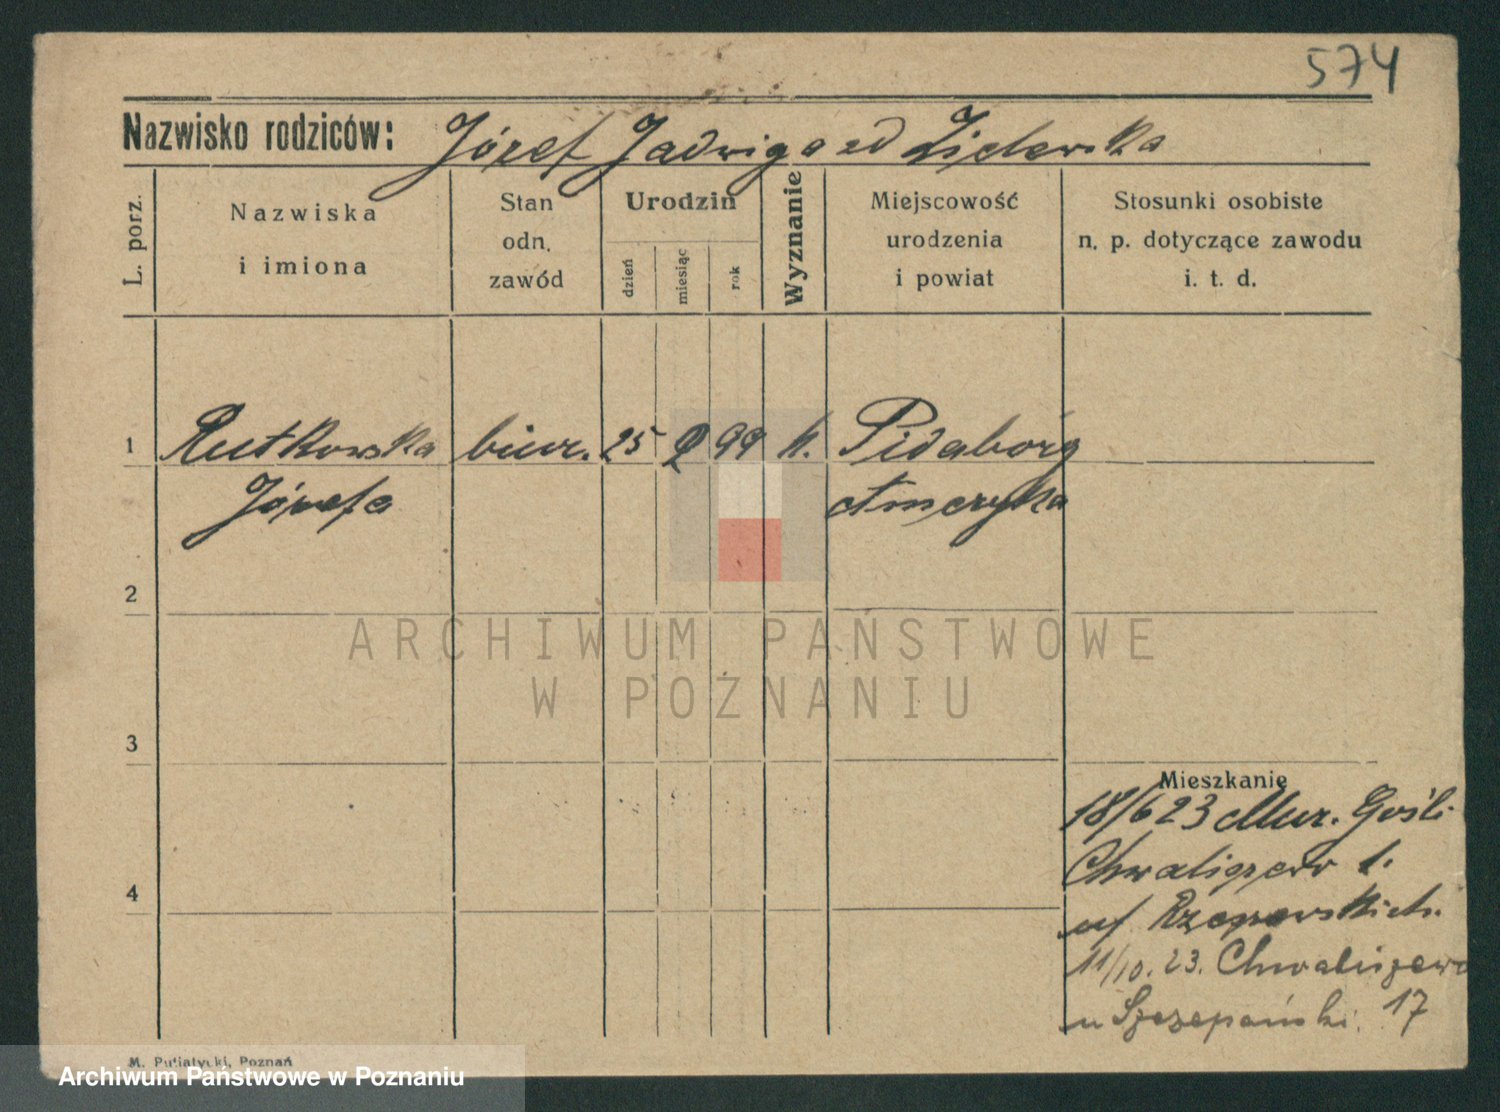 574
Nazwisko rodziców: Józef Jadwiga zd Zielewska
L. porz.
Nazwiska
i imiona
Stan
odn.
zawód
Urodzin
dzień
miesiąc
rok
Wyznanie
Miejscowość
urodzenia
i powiat
Stosunki osobiste
n. p. dotyczące zawodu
i. t. d.
1 Rutkowska biur. 25 2 99 k. Pidaborg
Józefa Ameryka
2
ARCHIWUM PAŃSTWOWE
W POZNANIU
3
Mieszkanie
18/6 23 Mur. Gośli
Chwaliszewo 1.
4
11/10. 23. Chwaliszewo
u Szczepański. 17
M. Putiatycki, Poznań
Archiwum Państwowe w Poznaniu